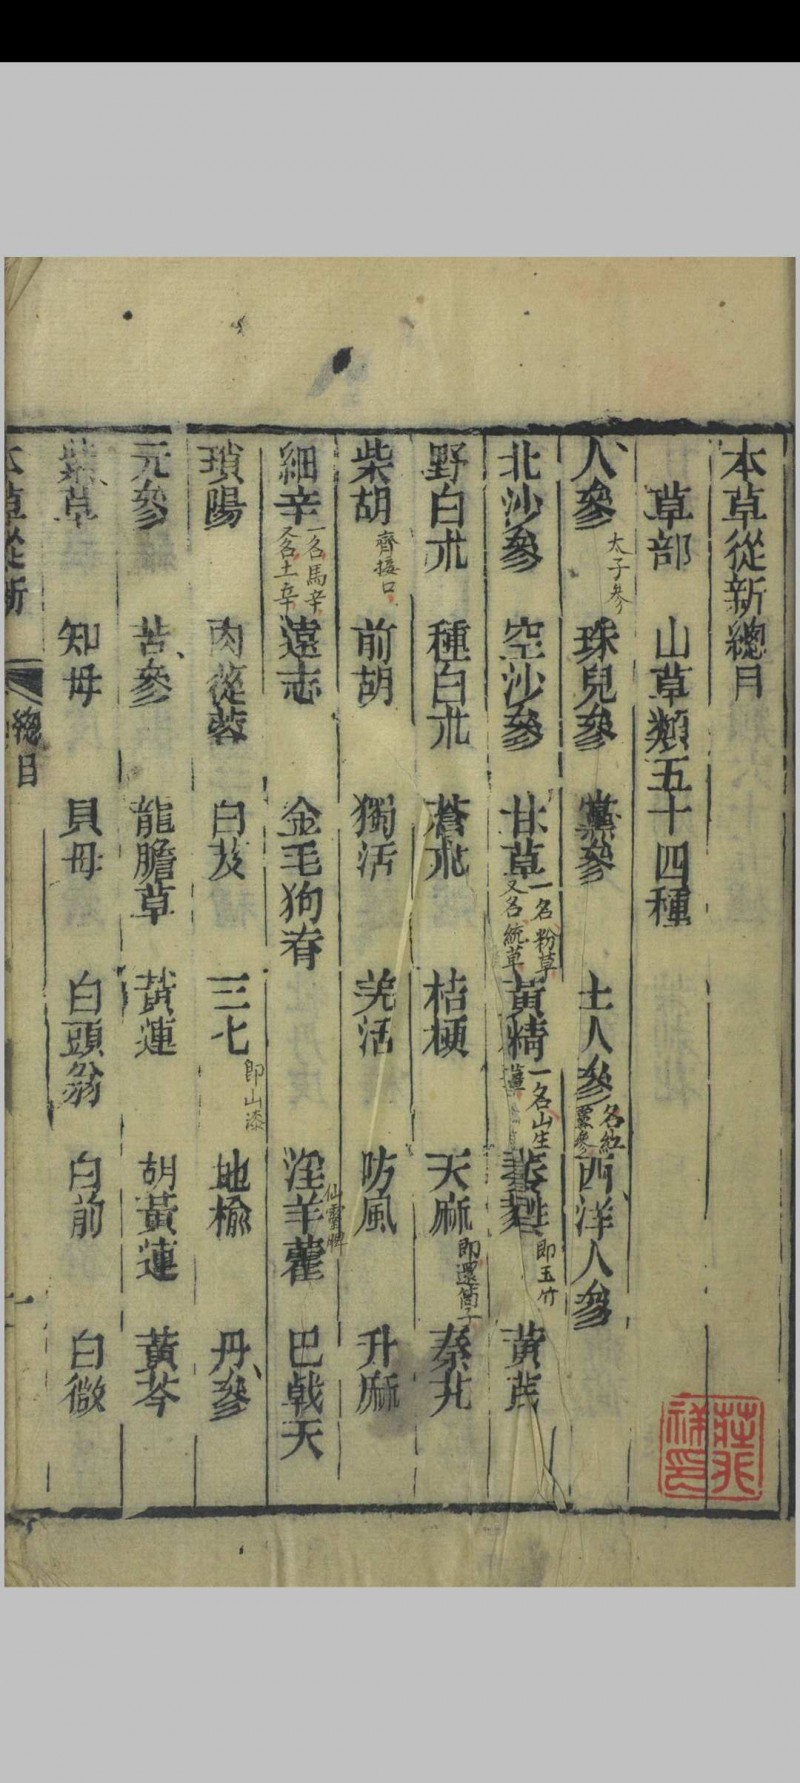 本草從新總目
草部 山草類五十四種
人參 太子參 珠兒參 黨參 土人參 名紅 參 西洋人參
北沙參 空沙參 甘草 一名粉草 又名統草 黃精 一名山生 萎蕤 即玉竹 黃芪
野白朮 種白朮 蒼朮 桔梗 天麻 即還筒子 秦艽
柴胡 齊接口 前胡 獨活 羌活 防風 升麻
細辛 一名馬辛 又名土辛 遠志 金毛狗脊 淫羊藿 仙靈脾 巴戟天
瑣陽 肉蓯蓉 白芨 三七 即山漆 地榆 丹參
元參 苦參 龍膽草 黃連 胡黃連 黃芩
紫草 知母 貝母 白頭翁 白前 白微
本草從新 總目 一